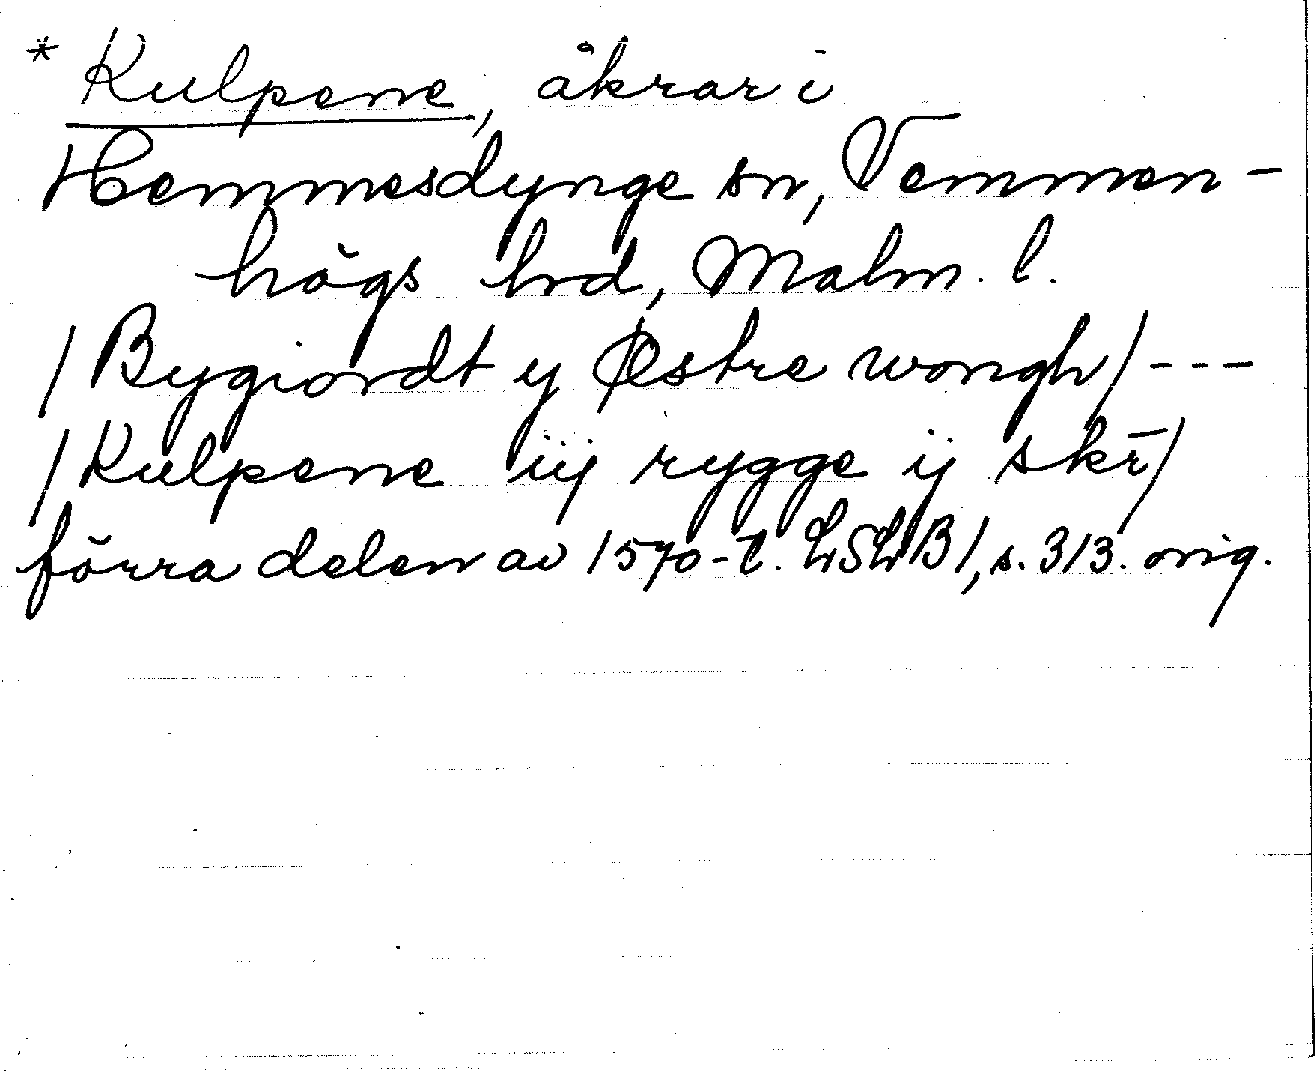 * Kulpene, åkrar i
Hemmesdynge sn, Vemmen-
högs hrd, Malm. l.
/Bygiordt y Østre wongh/ - - -
/Kulpene iij rygge ij skr̄/
förra delen av 1570-t. LSLB1, s. 313. orig.